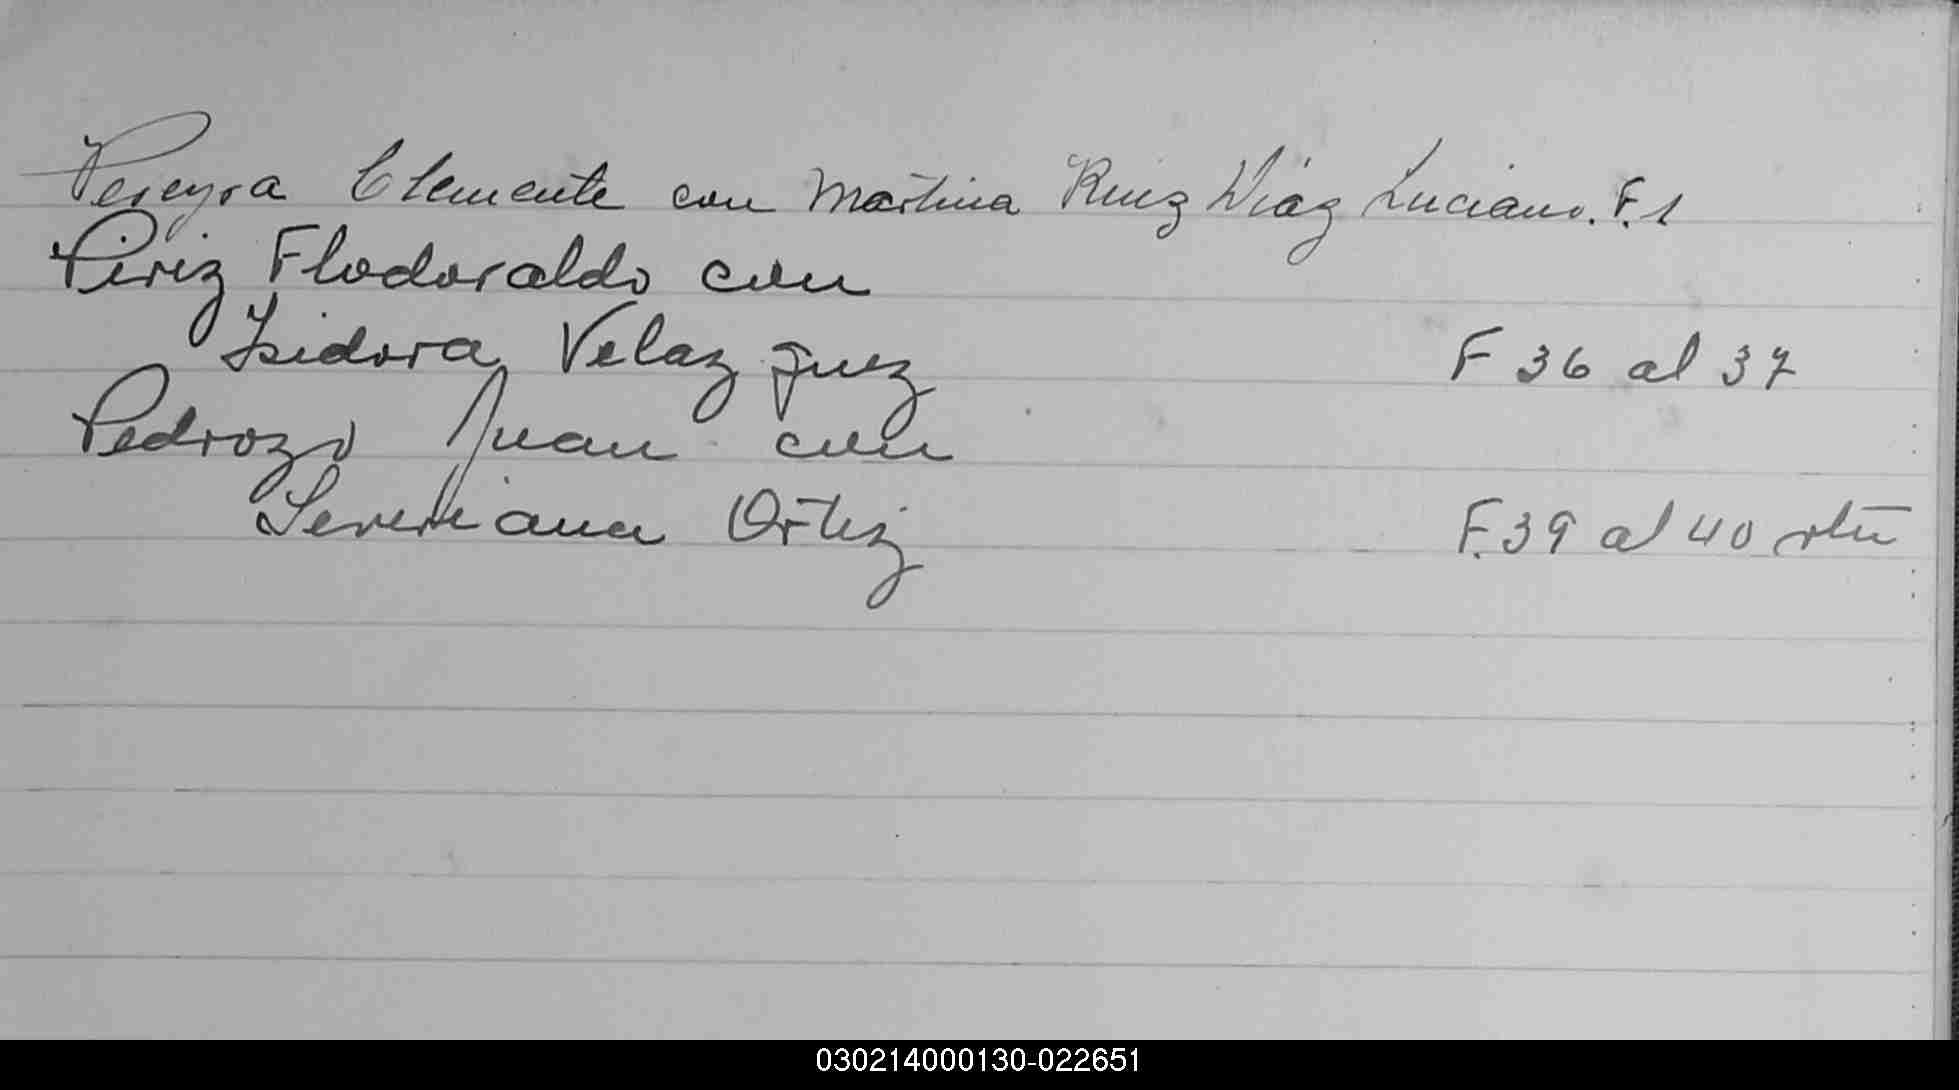 Pereyra Clemente con Martina Ruiz Diaz Luciano. F. 1
Piriz Flodoraldo con
Isidora Velazquez F 36 al 37
Pedrozo Juan con
Severiana Ortiz F. 39 al 40 vto
030214000130-022651